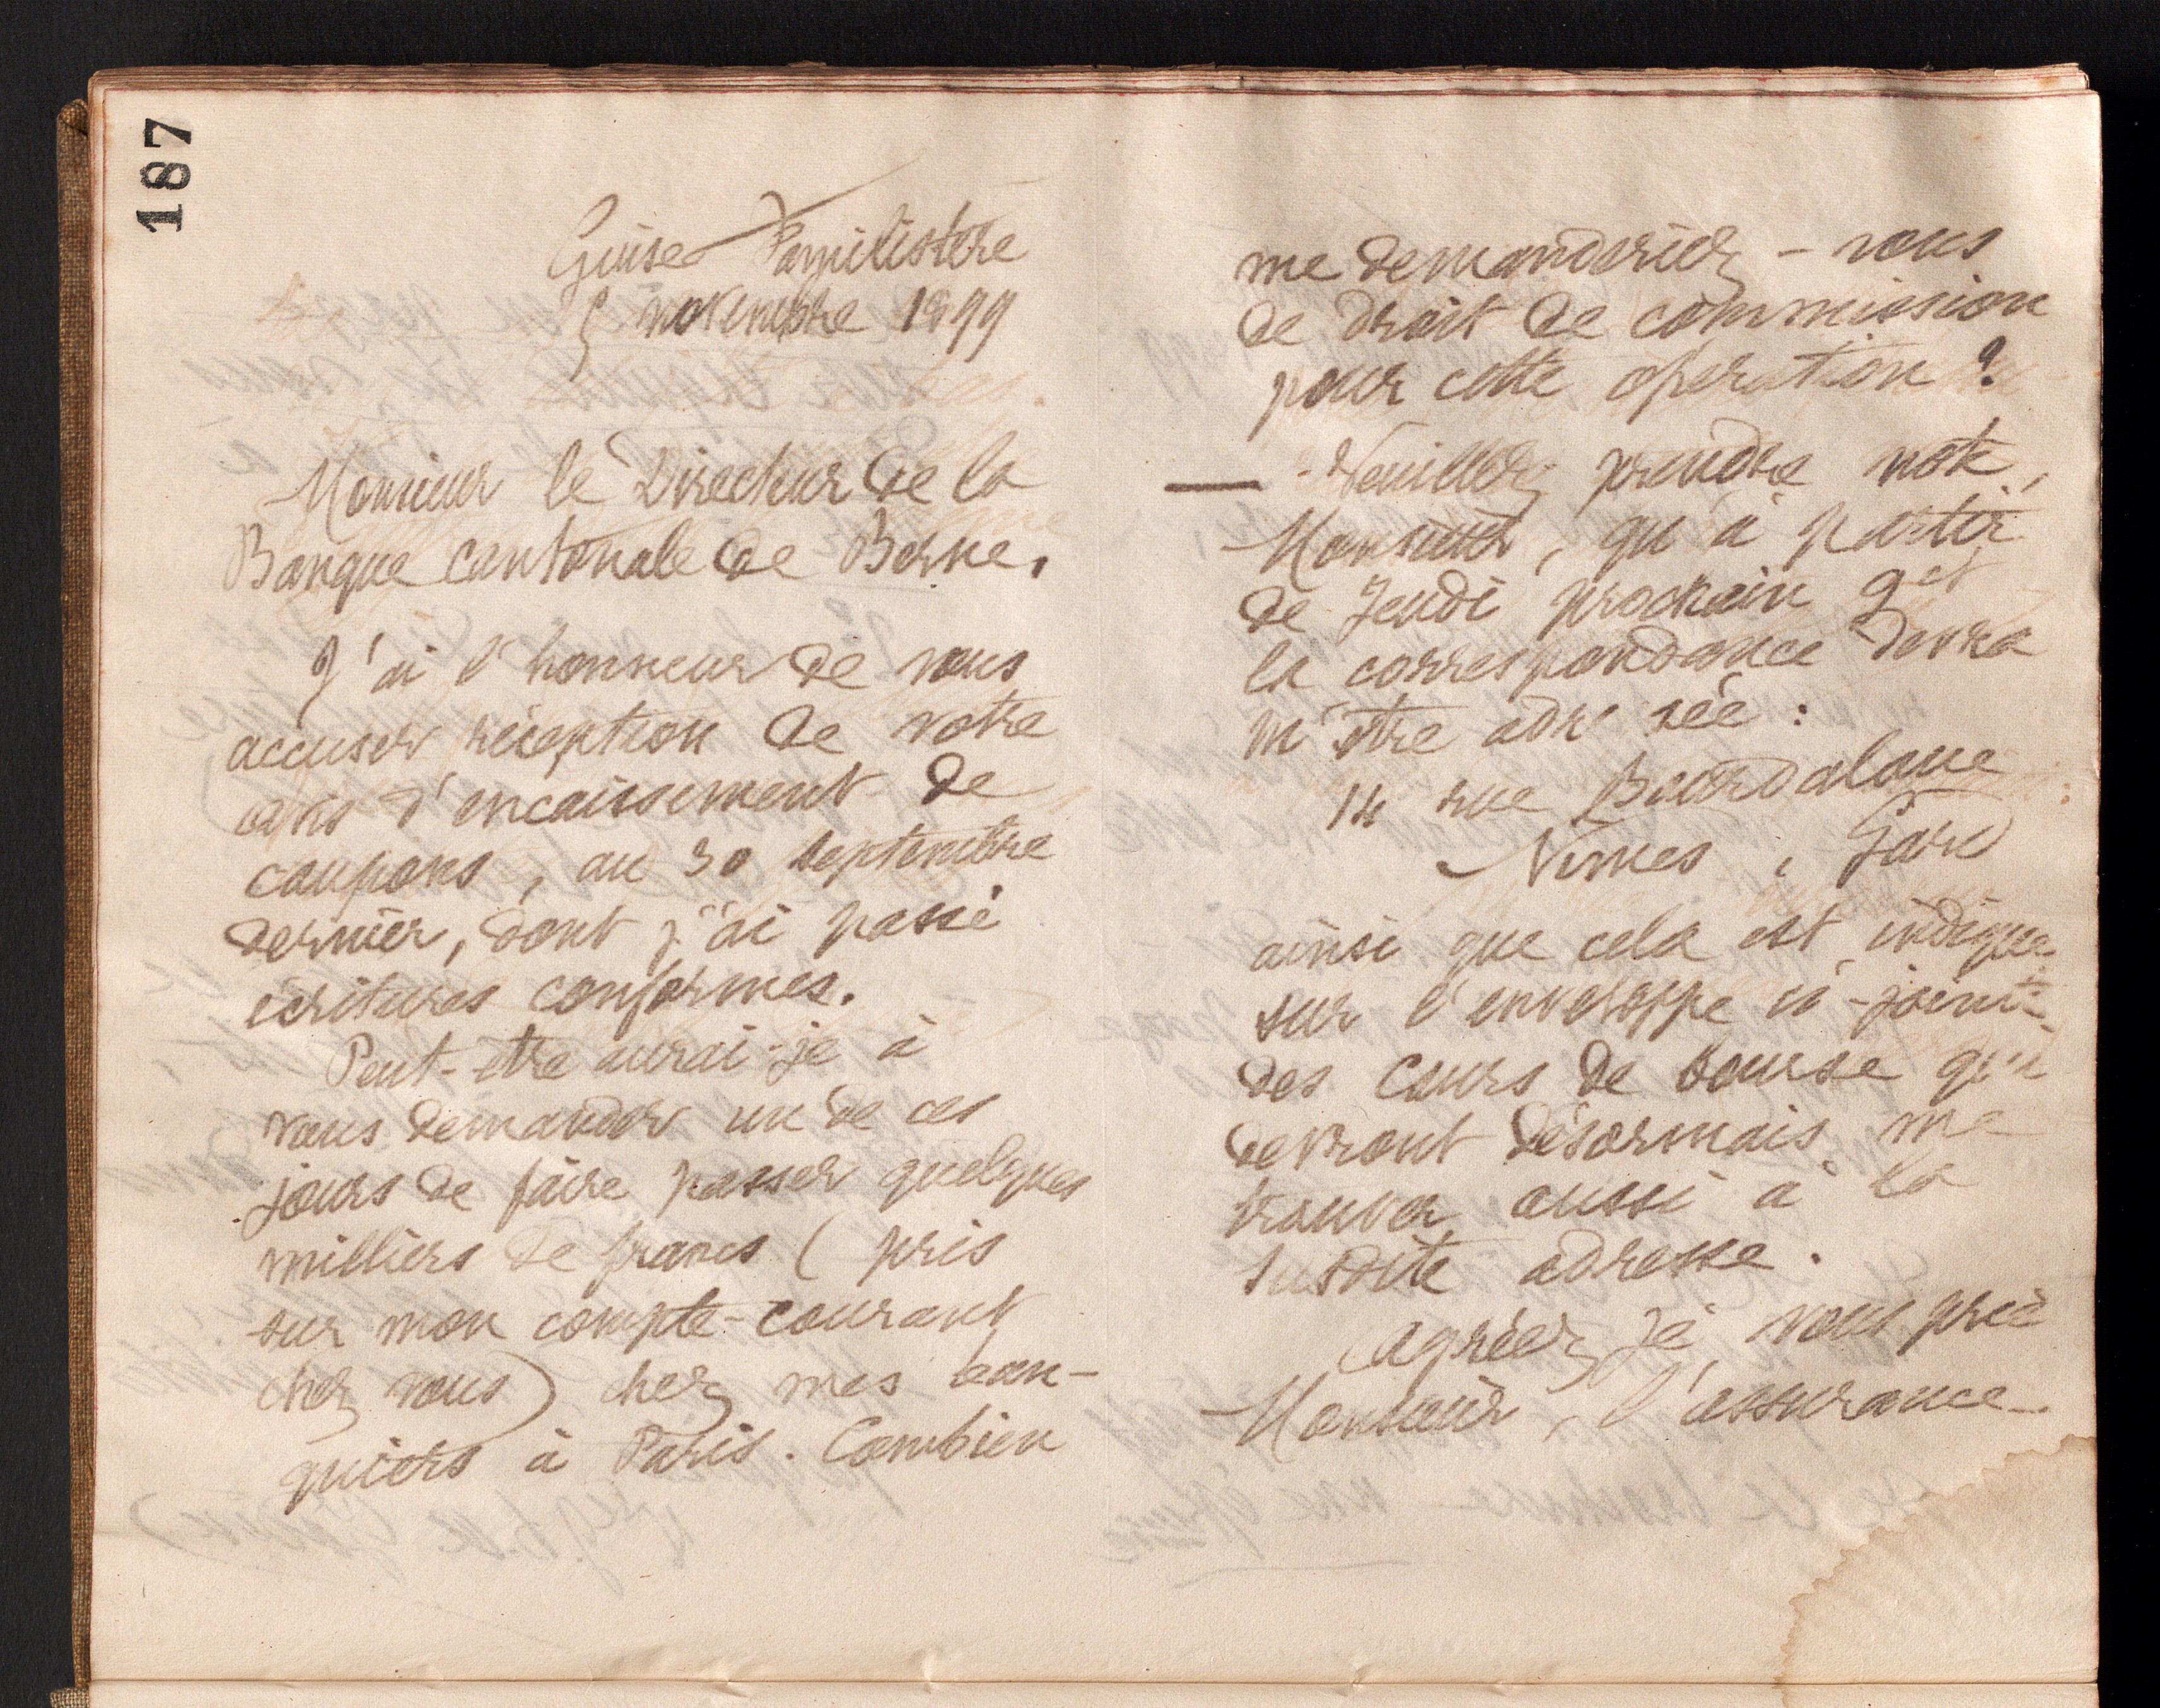 187
Guise Familistère
5 novembre 1899
Monsieur le Directeur de la
Banque cantonale de Berne.
J'ai l'honneur de vous
accuser réception de votre
avis d'encaissement de
coupons, au 30 septembre
dernier, dont j'ai passé
écritures conformes.
Peut-être aurai-je à
vous demander un de ces
jours de faire passer quelques
milliers de francs (pris
sur mon compte-courant
chez vous) chez mes ban-
quiers à Paris. Combien
me demanderiez-vous
de droit de commission
pour cette opération ?
— Veuillez prendre note,
Monsieur, qu'à partir
de Jeudi prochain 9 ct
la correspondance devra
m'être adr sée :
14 rue Bourdaloue
Nîmes, Gard
ainsi que cela est indiqué
sur l'enveloppe ci-jointe
des Cours de bourse qui
devront désormais me
trouver aussi à la
susdite adresse.
Agréez, je vous prie
Monsieur, l'assurance